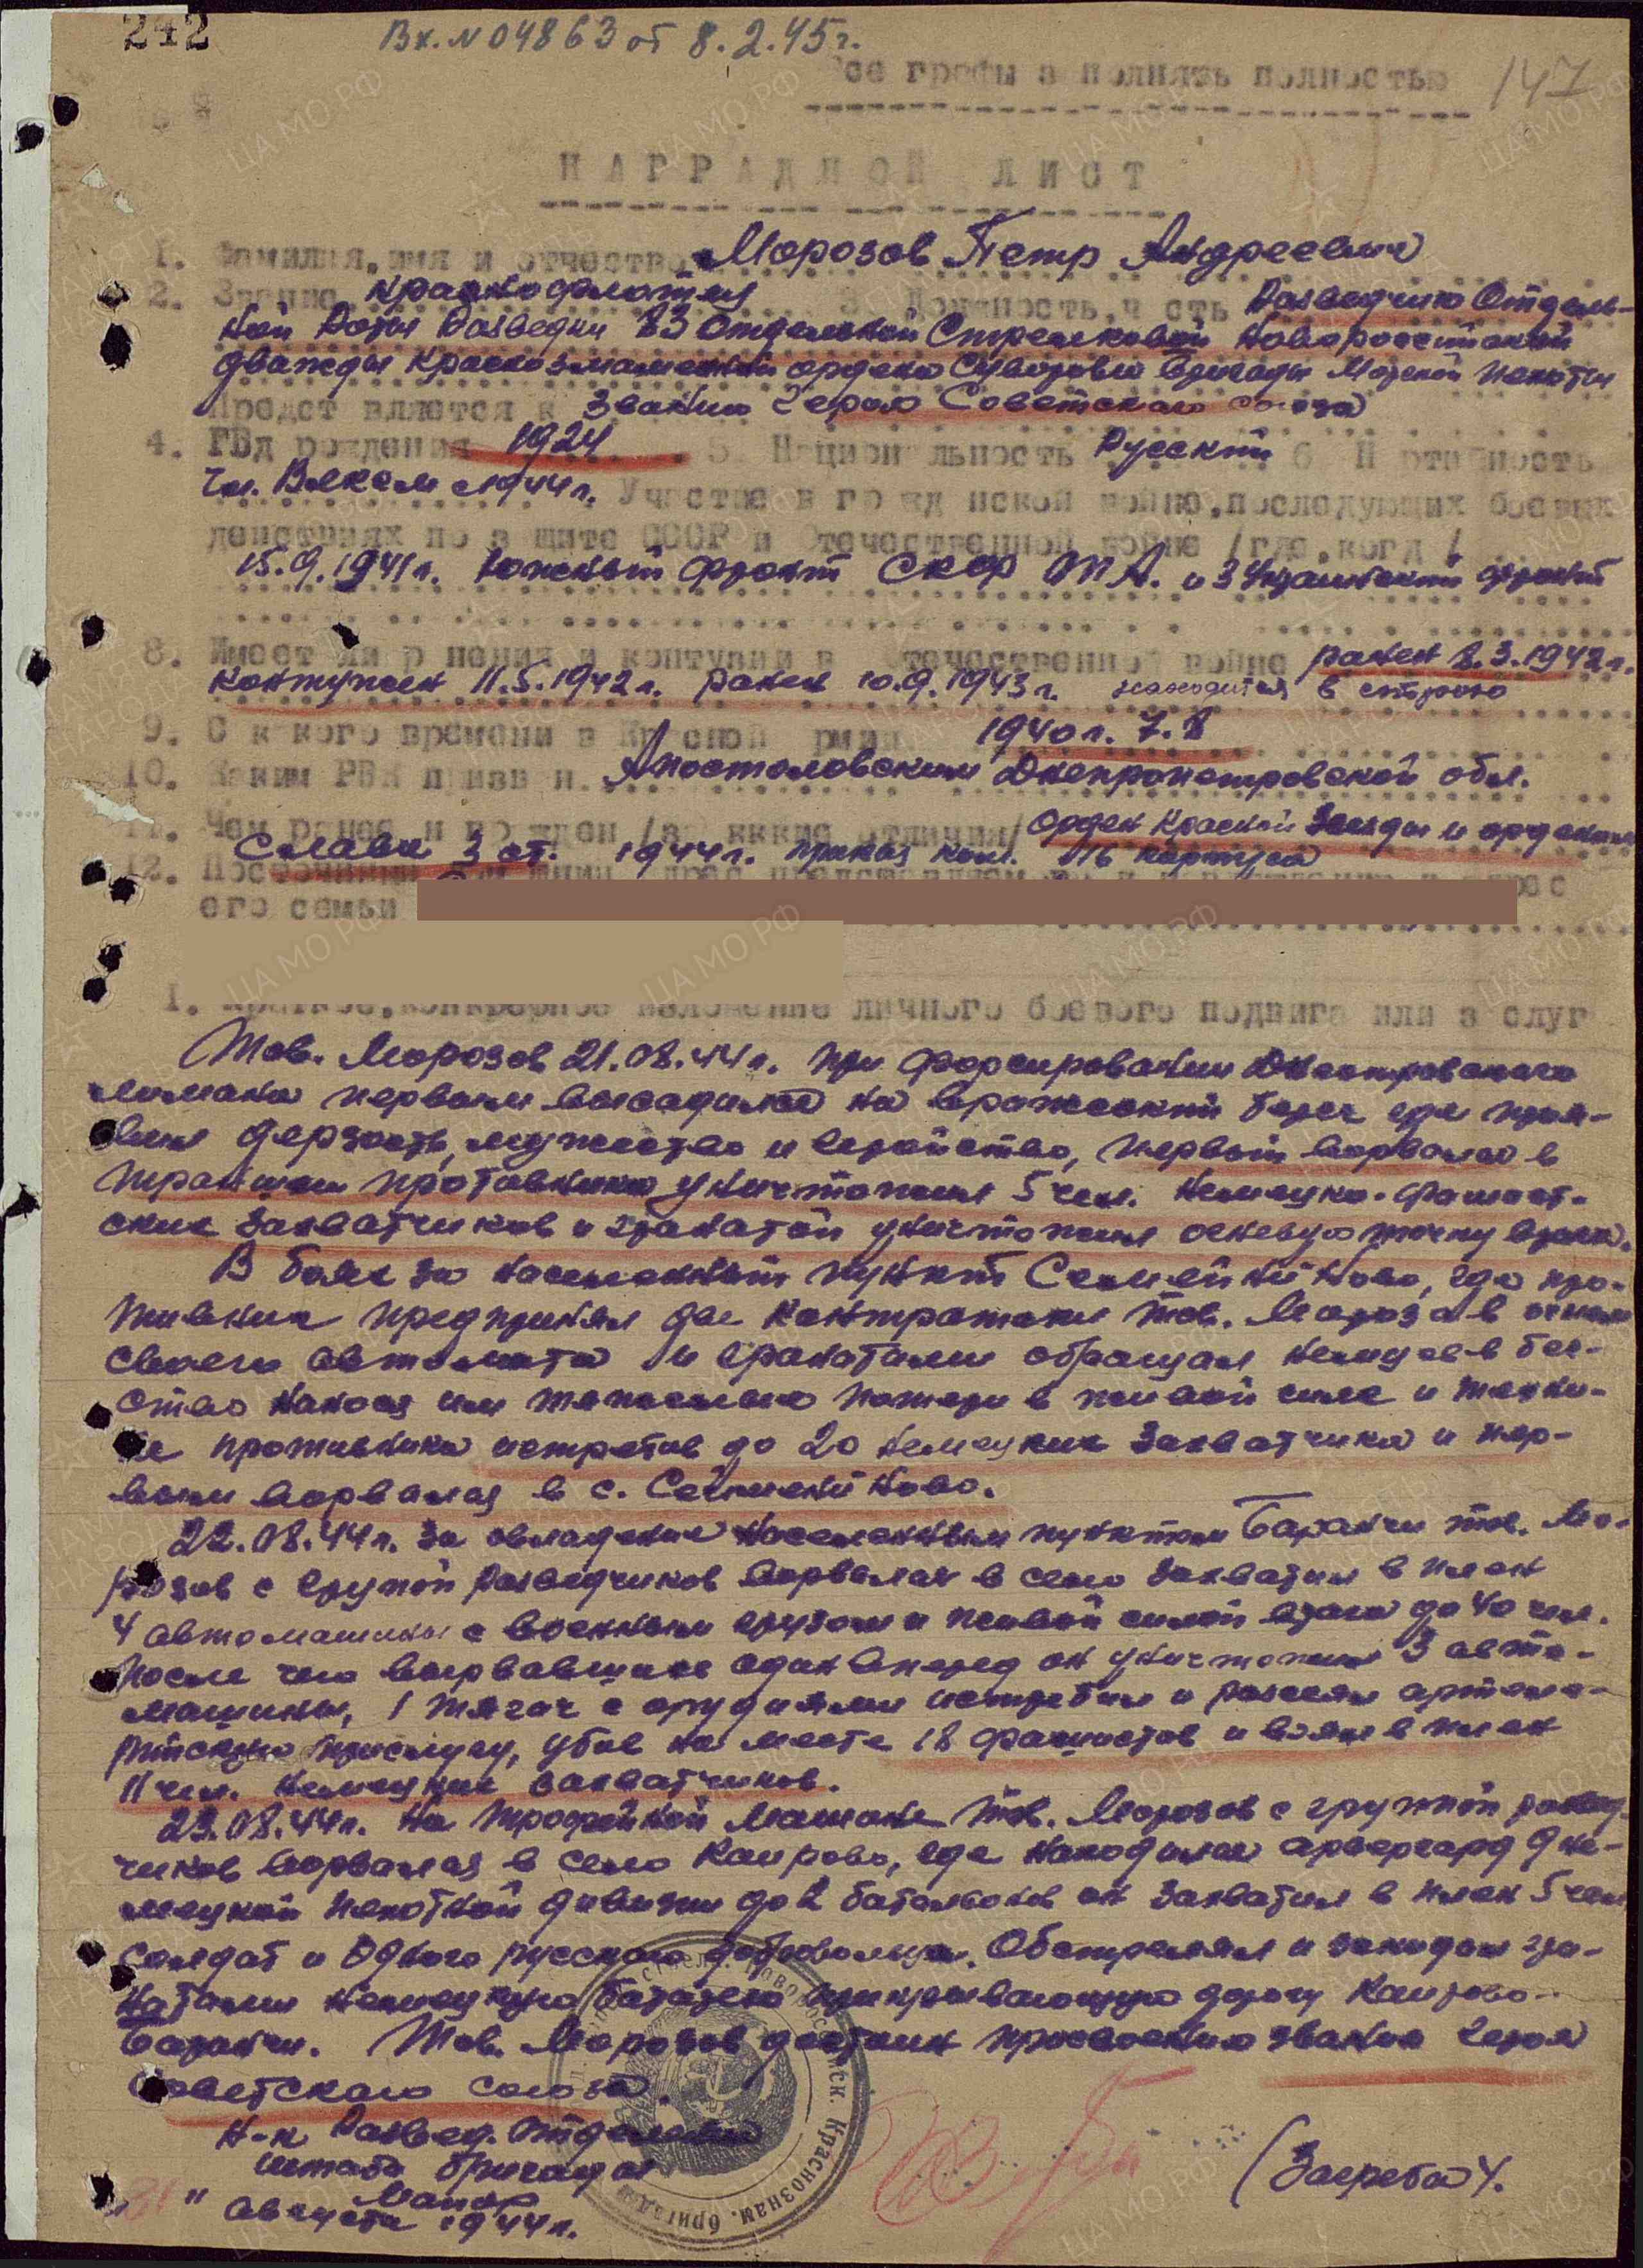 242
Вх. №04863 от 8.2.45г.
Все графы заполнять полностью
147
НАГРАДНОЙ ЛИСТ
1. Фамилия, имя и отчество Морозов Петр Андреевич
2. Звание краснофлотец 3. Должность, часть Разведчик Отдель-
ной Роты Разведки 83 Отдельной Стрелковой Новороссийской
дважды Краснознаменной ордена Суворова бригады Морской пехоты
Представляется к Званию Героя Советского союза
4. Год рождения 1924 5. Национальность Русский 6. Партийность
Чл. Влксм с 1944г. Участие в гражданской войне, последующих боевых
действиях по защите СССР и Отечественной войне /где, когда/
15.9.1941г. Южный фронт СКФ ОПА. и 3 Украинский фронт
8. Имеет ли ранения и контузии в Отечественной войне ранен 8.3.1942г.
контужен 11.5.1942г. ранен 10.9.1943г. находится в строю
9. С какого времени в Красной армии 1940г. 7.8
10. Каким РВК призван Апостоловским Днепропетровской обл.
11. Чем ранее награжден /за какие отличия/ Орден Красной Звезды и орденом
Славы 3 ст. 1944г. приказ ком. 16 корпуса
12. Постоянный домашний адрес представляемого к награждению и адрес
его семьи
1. Краткое, конкретное изложение личного боевого подвига или заслуг
Тов. Морозов 21.08.44г. при форсировании Днестровского
лимана первым высадился на вражеский берег где проя-
вил дерзость, мужество и геройство, первый ворвался в
траншеи противника уничтожил 5 чел. немецко-фашист-
ских захватчиков и гранатой уничтожил огневую точку врага.
В боях за населенный пункт Семиейкиново, где про-
тивник предпринял две контратаки тов. Морозов огнем
своего автомата и гранатами обращал немцев в бег-
ство нанося им тяжелые потери в живой силе и техни-
ке противника истребив до 20 немецких захватчика и пер-
вым ворвался в с.
22.08.44г. за овладение населенным пунктом Баранчи тов. Мо-
розов с групой разведчиков ворвался в село захватил в плен
4 автомашины с военным грузом и живой силой врага до 40 чел.
После чего вырвавшись один вперед он уничтожил 3 авто-
машины, 1 тягач с орудиями истребил и рассеял артиле-
рийскую прислугу, убив на месте 18 фашистов и взял в плен
11 чел. немецких захватчиков.
23.08.44г. на трофейной машине тов. Морозов с групой развед-
чиков ворвался в село Каирово, где находился арьергард 9 не-
мецкой пехотной дивизии до 2 батальонов он захватил в плен 5 чел.
солдат и одного русского добровольца. Обстрелял и закидал гра-
натами немецкую батарею прикрывающую дорогу Каирово-
Баранчи. Тов. Морозов достоин присвоению звания Героя
Советского союза.
Н-к Развед. Отделения
штаба бригады
Майор
(Загреба).
" августа 1944г.